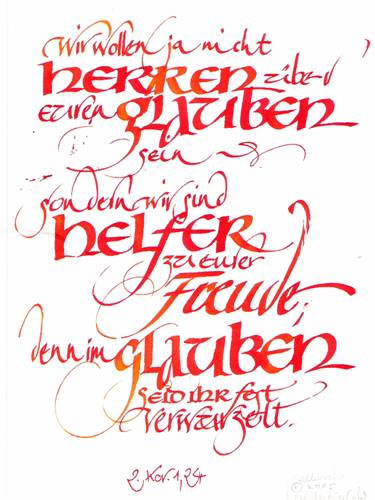 Wir wollen ja nicht
HERREN über
Euren GLAUBEN
sein
sondern wir sind
HELFER
zu eurer
Freude,
denn im
GLAUBEN
seid ihr fest
verwurzelt.
2. Kor. 1,24